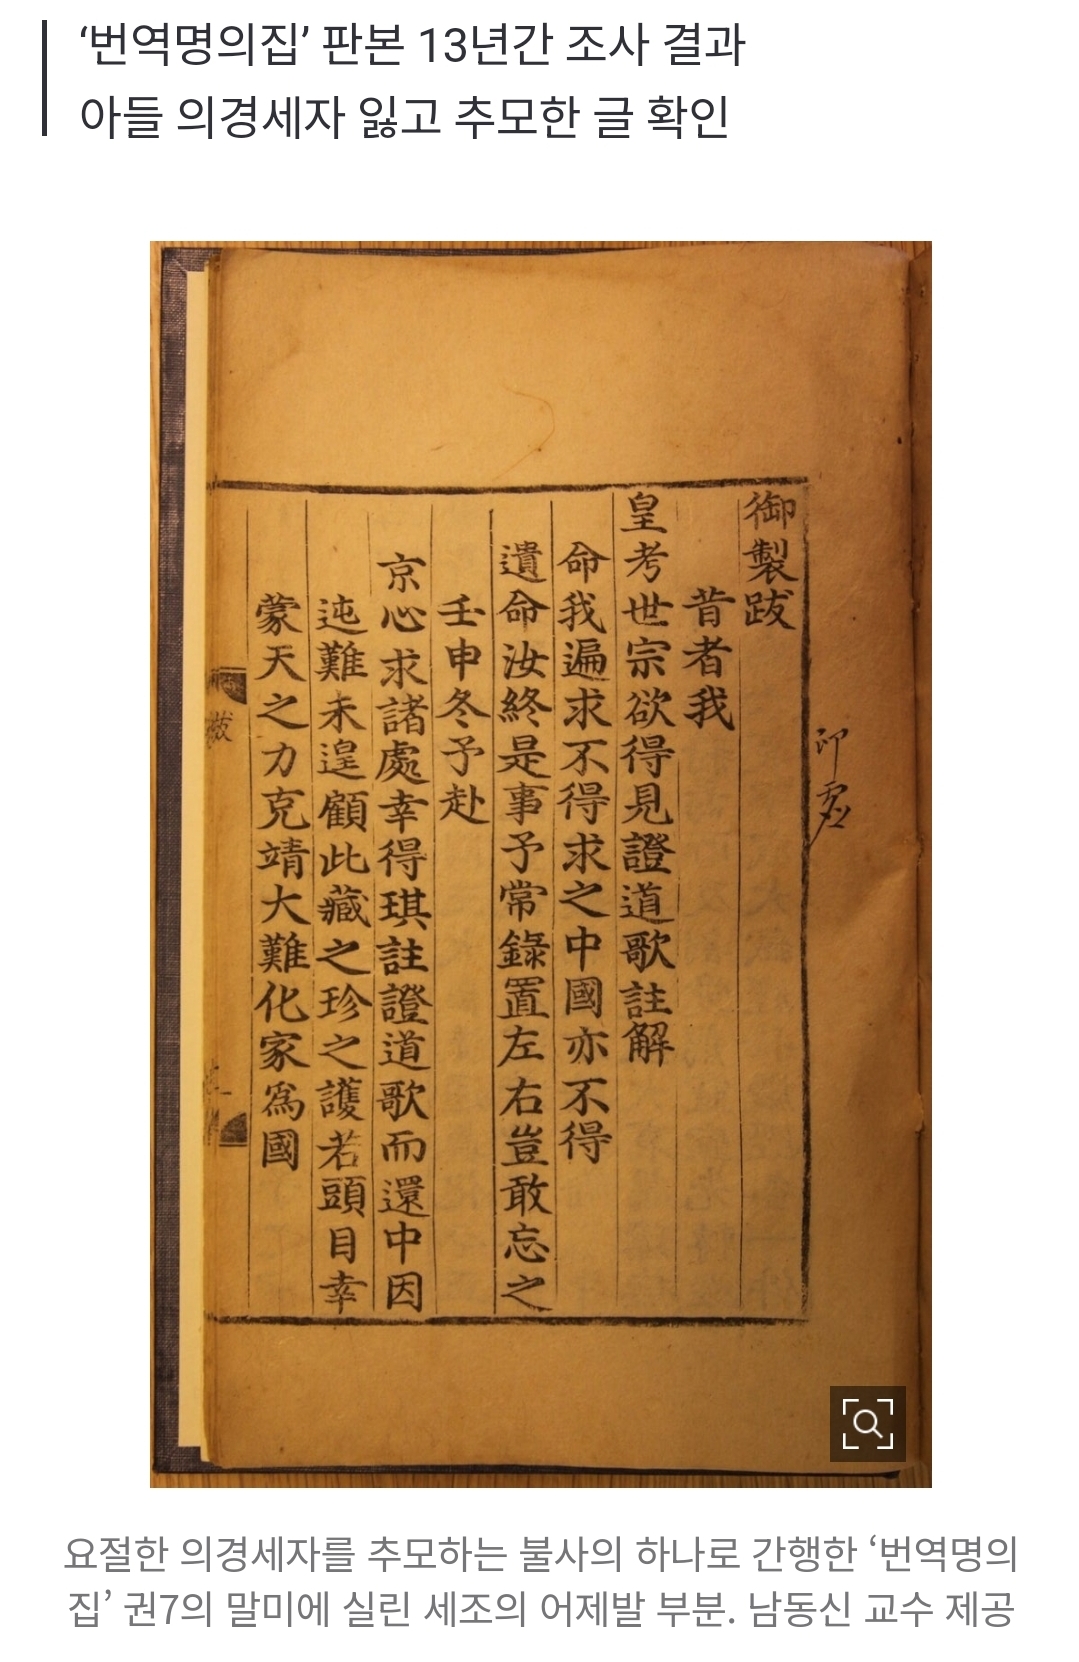 ‘번역명의집’ 판본 13년간 조사 결과
아들 의경세자 잃고 추모한 글 확인
御製跋
昔者我
皇考世宗欲得見證道歌註解
命我遍求不得求之中國亦不得
遺命汝終是事予常錄置左右豈敢忘之
壬申冬予赴
京心求諸處幸得琪註證道歌而還中因
迍難未遑顧此藏之珍之護若頭目幸
蒙天之力克靖大難化家爲國
跋
요절한 의경세자를 추모하는 불사의 하나로 간행한 ‘번역명의
집’ 권7의 말미에 실린 세조의 어제발 부분. 남동신 교수 제공